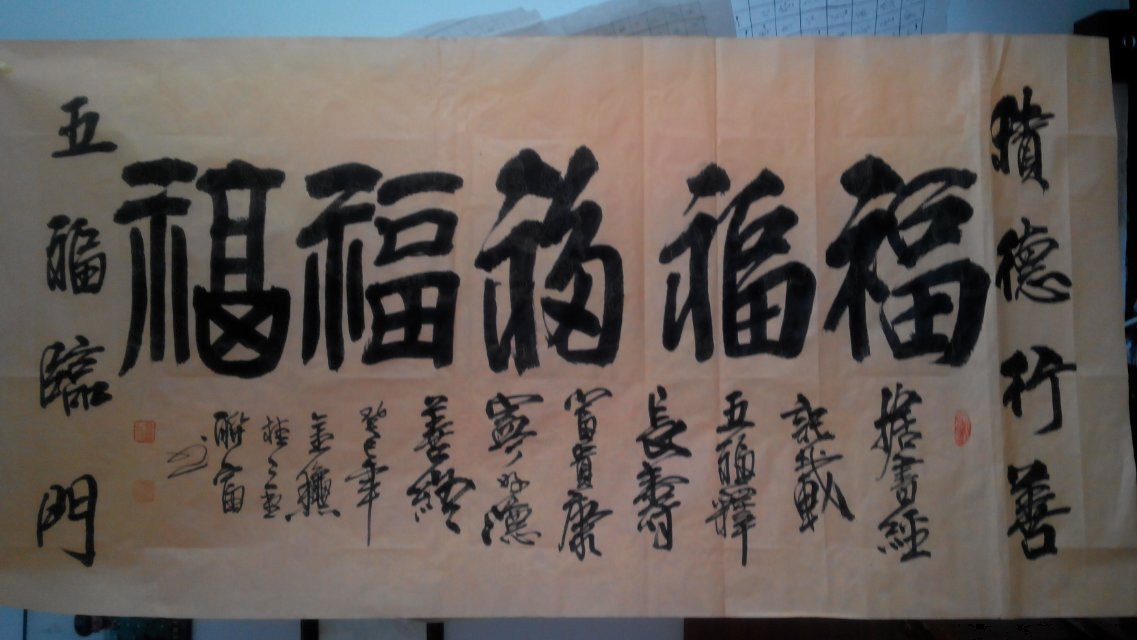 積德行善
福福福福福
據書經
記載
五福釋
長壽
富貴康
寧好德
善終
癸巳年
金穗
五福臨門